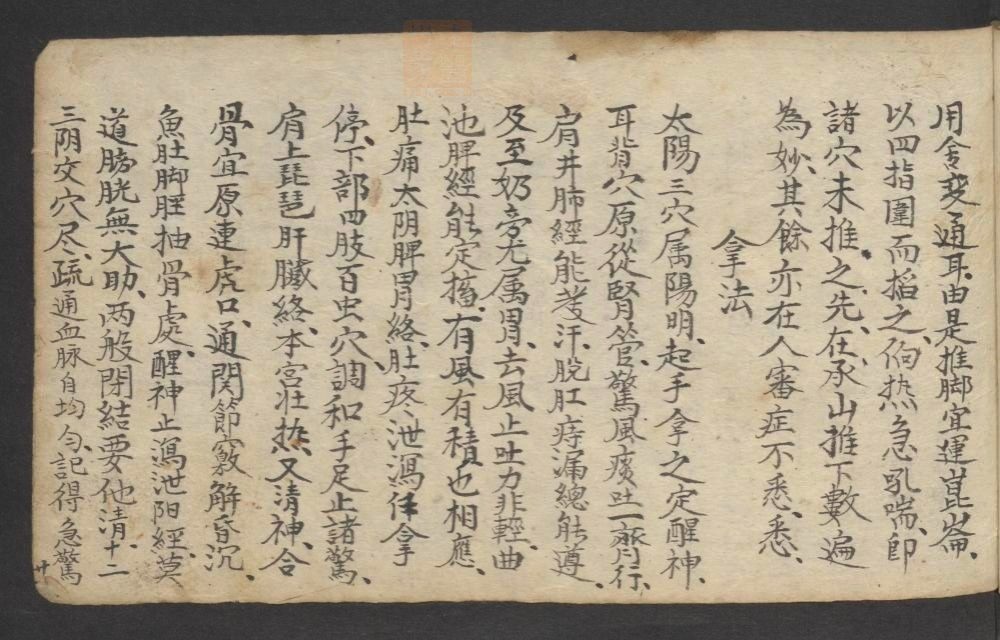 用舍变通耳由是推脚宜運崑崙、
以四指圍而掐之、伺热急吼喘、即
諸穴未推、之先、在承山推下數遍
為妙、其餘亦在人審症不悉、悉、
拿法
太陽三穴属陽明、起手拿之定醒神、
耳背穴原從腎管、驚風痰吐一齊行、
肩井肺經能發汗、脫肛痔漏總能遵、
及至奶旁尤属胃、去風止吐力非輕、曲
池脾經能定搐、有風有積也相應、
肚痛太阴脾胃絡、肚疼、泄瀉任拿
停、下部四肢百虫穴調和手足止諸驚、
肩上琵琶肝臟絡、本宮壮热又清神、合
骨宜原連虎口、通関節竅解昏沉、
魚肚脚脛抽骨處、醒神止瀉泄阳經、莫
道膀胱無大助、两般閉結要他清、十二
三阴交穴尽、疏通血脉自均匀、記得急驚
廿